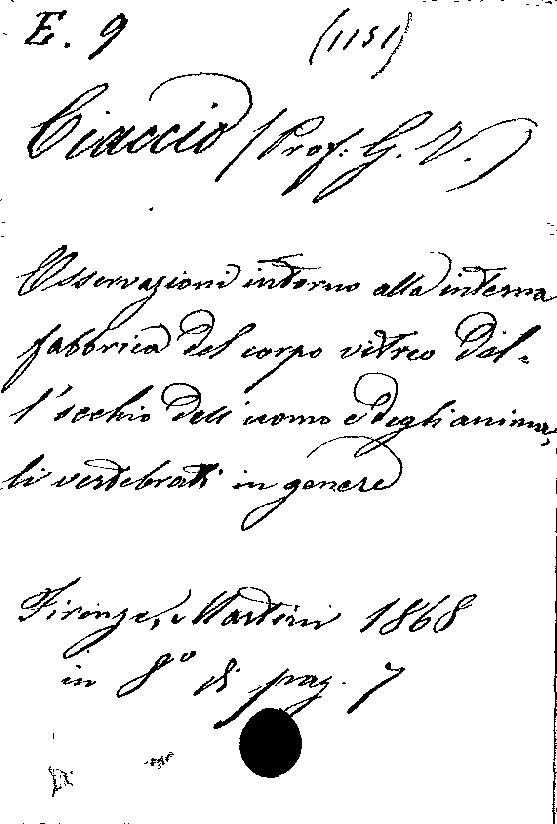 E. 9 (1151)
Ciaccio (Prof: G. V.)
Osservazioni intorno alla interna
fabbrica del corpo vitreo del-
l'occhio dell'uomo e degli anima,
li vertebrati in genere
Firenze, Martini 1868
in 8º di pag. 7